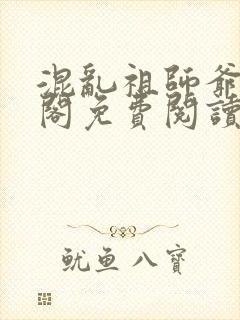 混亂祖師爺
閣免費閱讀
魷魚八寶